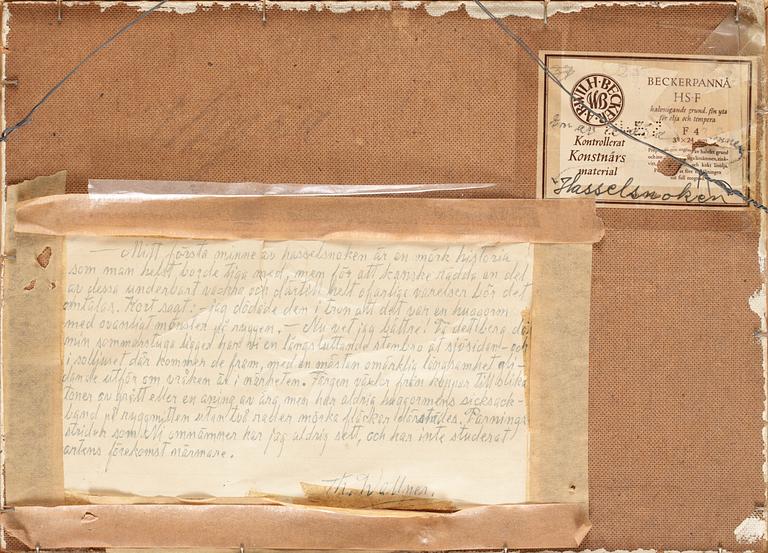 BECKERPANNÅ
HS-F
halvsugande grund, fin yta
för olja och tempera
F 4
33×24
A.B. WILH. BECKER
WB
Kontrollerat
Konstnärs
material
Hasselsnoken
– Mitt första minne av hasselsnoken är en mörk historia
som man helst borde tiga med, men för att kanske rädda en del
av dessa underbart vackra och därtill helt ofarliga varelser bör det
omtalas. Kort sagt: – jag dödade den i tron att det var en huggorm
med ovanligt mönster på ryggen. – Nu vet jag bättre! Vid
min sommarstuga har vi en långsluttande stenbro åt sjösidan – och
i solljuset där kommer de fram, med en nästan omärklig långsamhet gli-
dande utför om vråken är i närheten. Färgen växlar från koppar till blika
toner av grått eller en aning av ärg men har aldrig huggormens sicksack-
band på ryggmitten utan två rader mörka fläckar därstädes. Parnings-
strider som Ni omnämner har jag aldrig sett, och har inte studerat
artens förekomst närmare.
Th. Wallner.